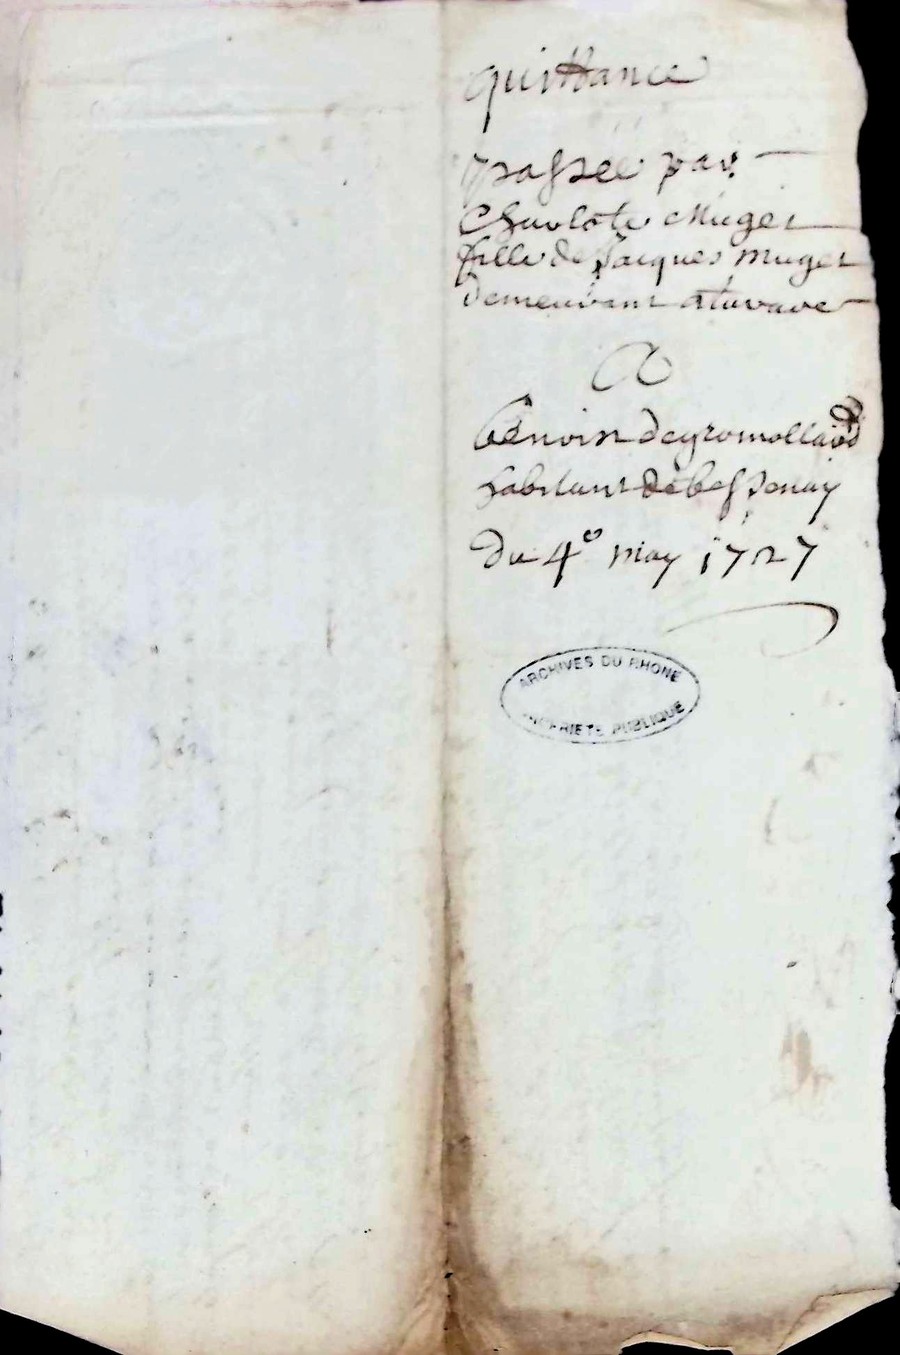 quittance
passée par
Charlote Muget
fille de Jacques Muget
demeurant a tarare
A
Benoist deyromollard
habitant de bessenay
du 4e may 1727
ARCHIVES DU RHONE
PROPRIETE PUBLIQUE